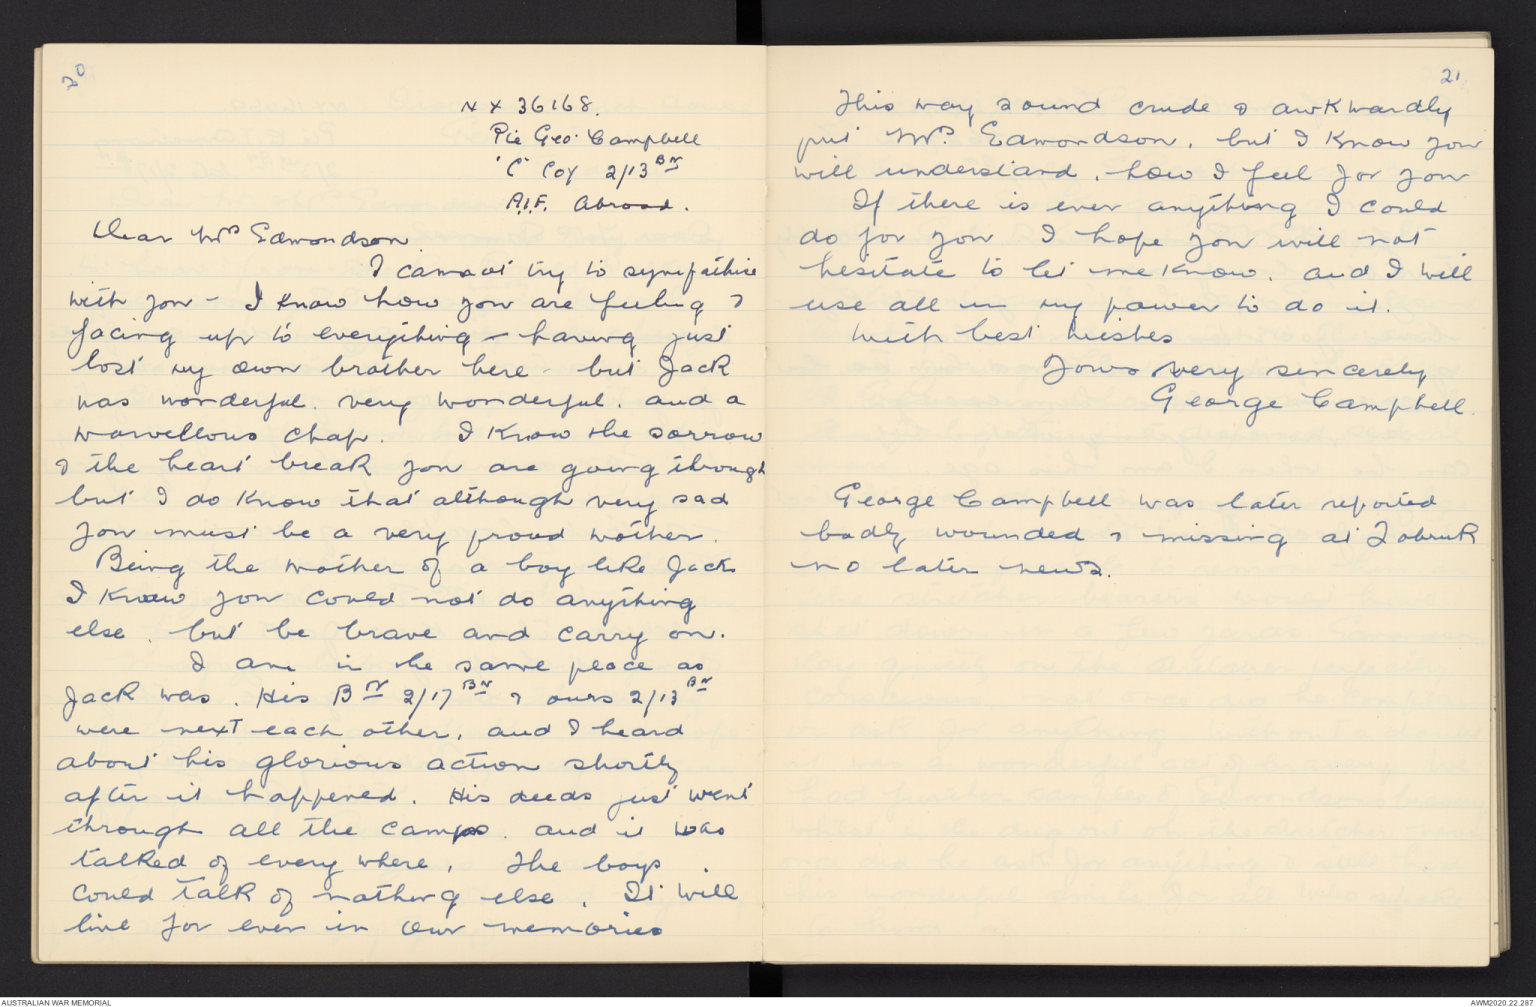 20
NX 36168.
Pte Geo. Campbell
'C' Coy 2/13 Bn
A.I.F. Abroad.
Dear Mrs Edmondson.
I cannot try to sympathise
with you - I know how you are feeling &
facing up to everything - having just
lost my own brother here - but Jack
was wonderful. very wonderful. and a
marvellous chap. I know the sorrow
& the heart break you are going through
but I do know that although very sad
you must be a very proud mother.
Being the mother of a boy like Jack
I know you could not do anything
else. but be brave and carry on.
I am in the same place as
Jack was. His Bn 2/17 Bn & ours 2/13 Bn
were next each other, and I heard
about his glorious action shortly
after it happened. His deeds just went
through all the camps. and it was
talked of every where. The boys
could talk of nothing else. It will
live for ever in our memories
21
This may sound crude & awkwardly
put Mrs. Edmondson. but I know you
will understand. how I feel for you
If there is ever anything I could
do for you I hope you will not
hesitate to let me know. and I will
use all in my power to do it.
With best wishes
Yours very sincerely
George Campbell.
George Campbell was later reported
badly wounded & missing at Tobruk
no later news.
AUSTRALIAN WAR MEMORIAL
AWM2020.22.287